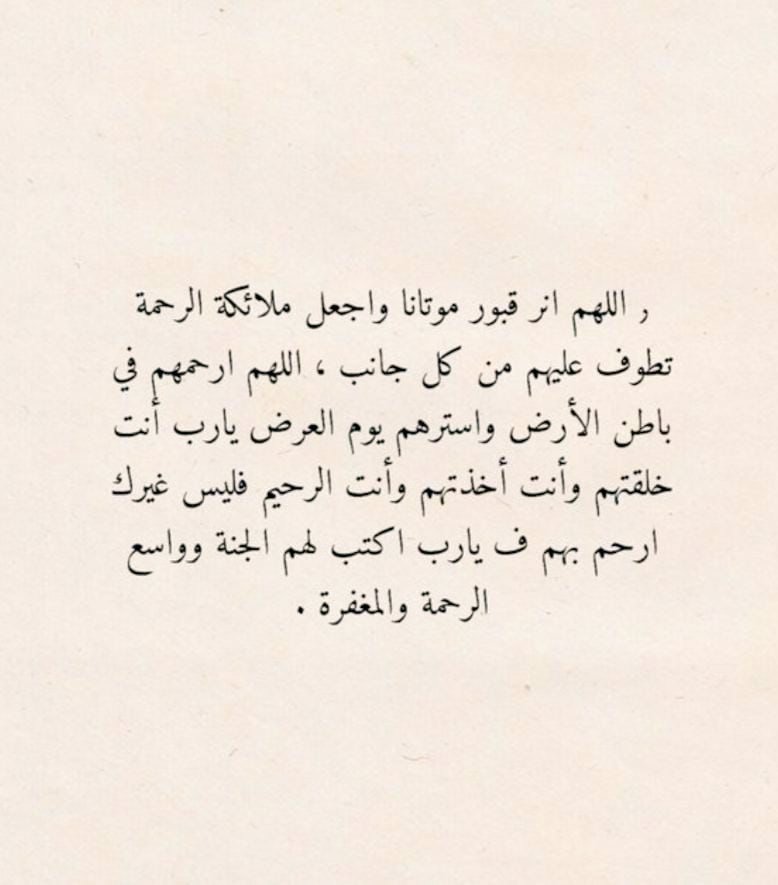 ر اللهم انر قبور موتانا واجعل ملائكة الرحمة
تطوف عليهم من كل جانب ، اللهم ارحمهم في
باطن الأرض واسترهم يوم العرض يارب أنت
خلقتهم وأنت أخذتهم وأنت الرحيم فليس غيرك
ارحم بهم ف يارب اكتب لهم الجنة وواسع
الرحمة والمغفرة .